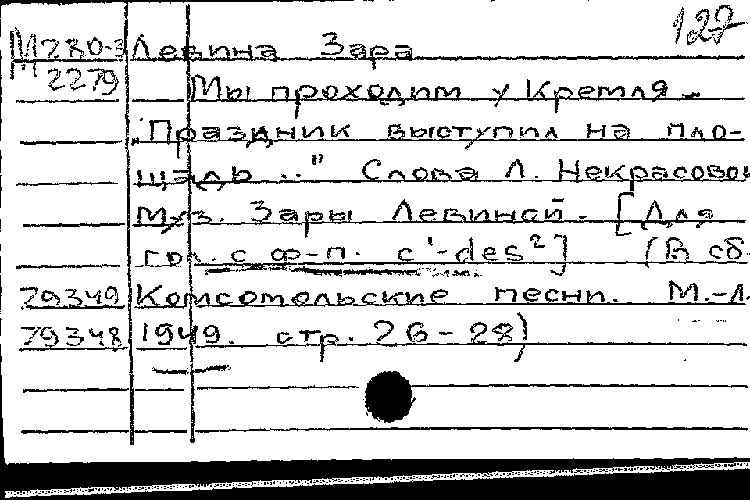 127
М280-3 Левина Зара
М2279 Мы проходим у Кремля.-
„Праздник выступил на пло-
щадь .." Слова Л. Некрасовой
Муз. Зары Левиной. [Для
гол. с ф-п. c'-des²] (В сб.
79349 Комсомольские песни. М.-Л.
79348 1949. стр. 26-28)